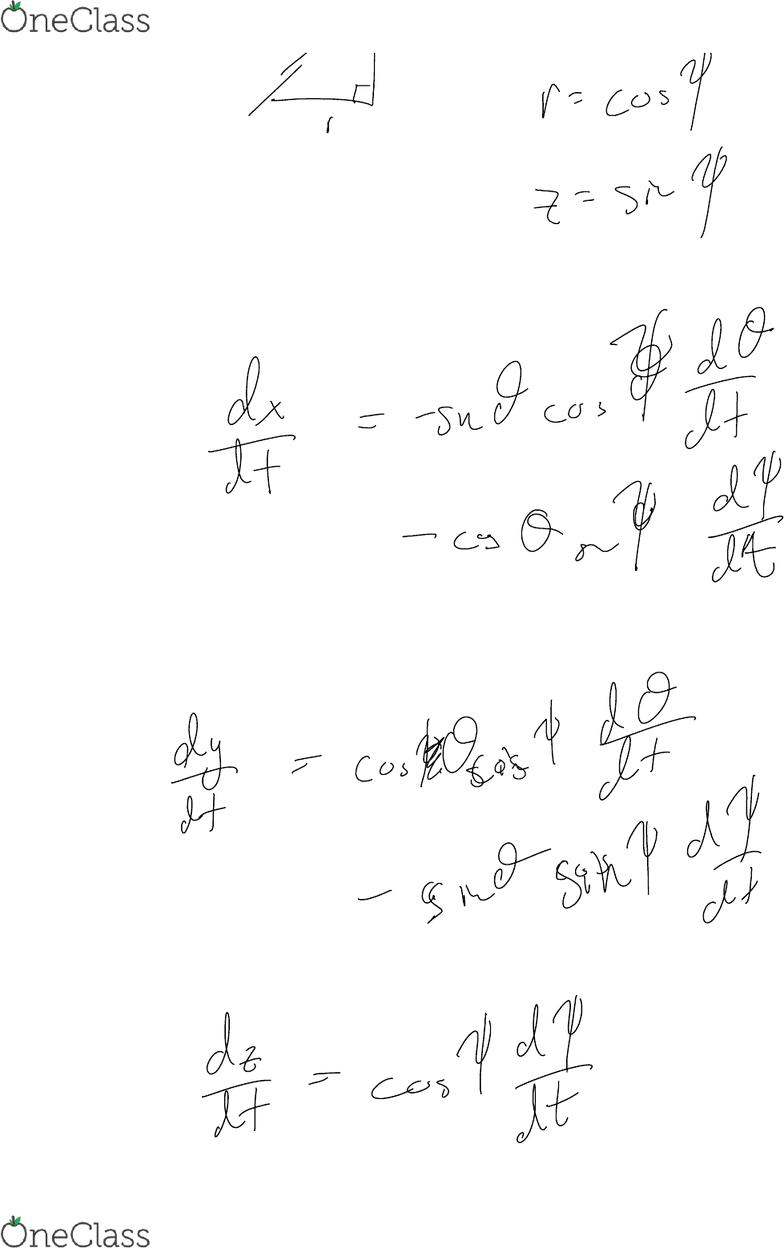 OneClass
r
r = cos ψ
z = sin ψ
dx/dt = -sn θ cos ψ dθ/dt
- cos θ sn ψ dψ/dt
dy/dt = cos θ cos ψ dθ/dt
- sin θ sin ψ dψ/dt
dz/dt = cos ψ dψ/dt
OneClass